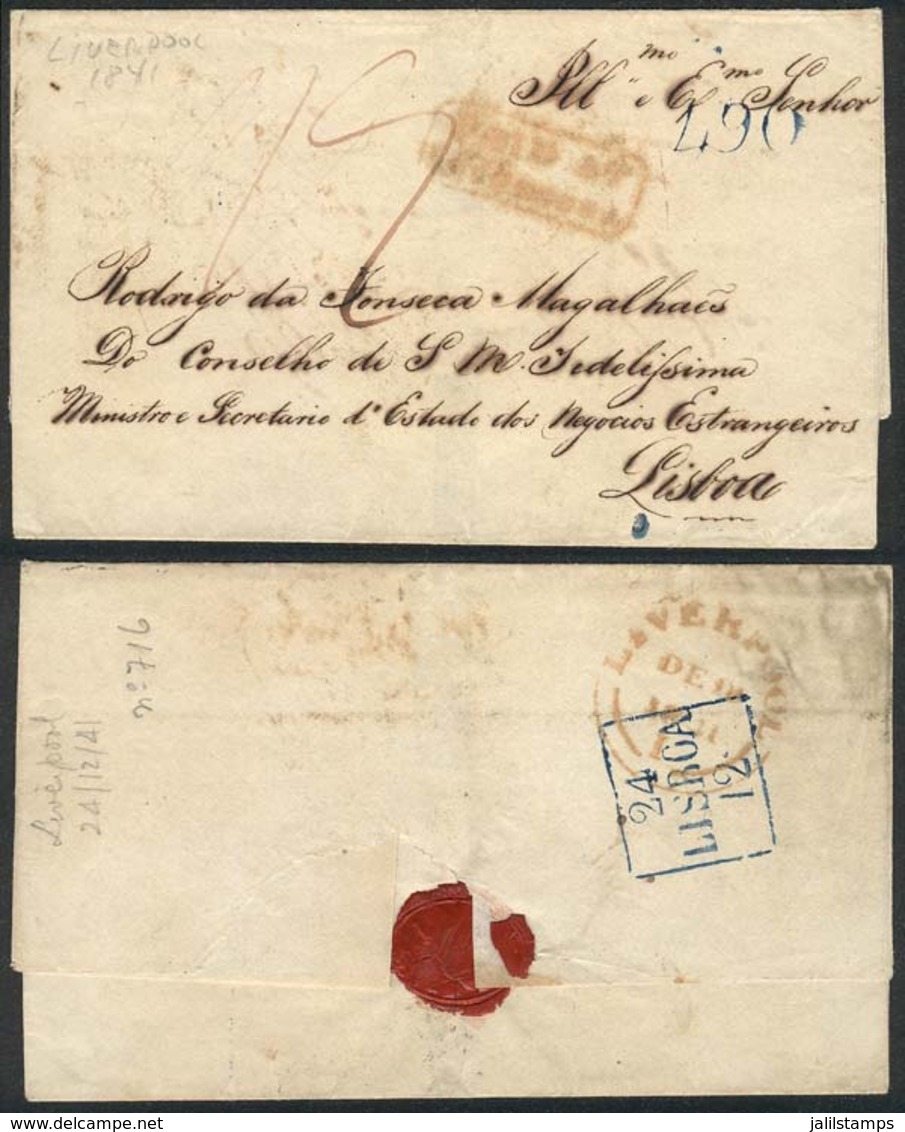 LIVERPOOL
1841
Ill.mo e Ex.mo Senhor
490
19
Rodrigo da Fonseca Magalhaẽs
Do Conselho de S. M. Fidelissima
Ministro e Secretario d'Estado dos Negocios Estrangeiros
Lisboa
LIVERPOOL
DE
24
LISBOA
12
nº 716
Liverpool
24/12/41
jalilstamps